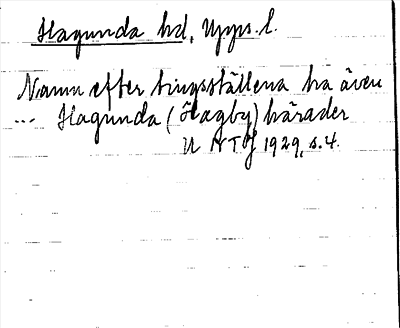 Hagunda hd, Upps. l.
Namn efter tingsställena ha även
... Hagunda (Hagby) härader
U NTG 1929, s. 4.